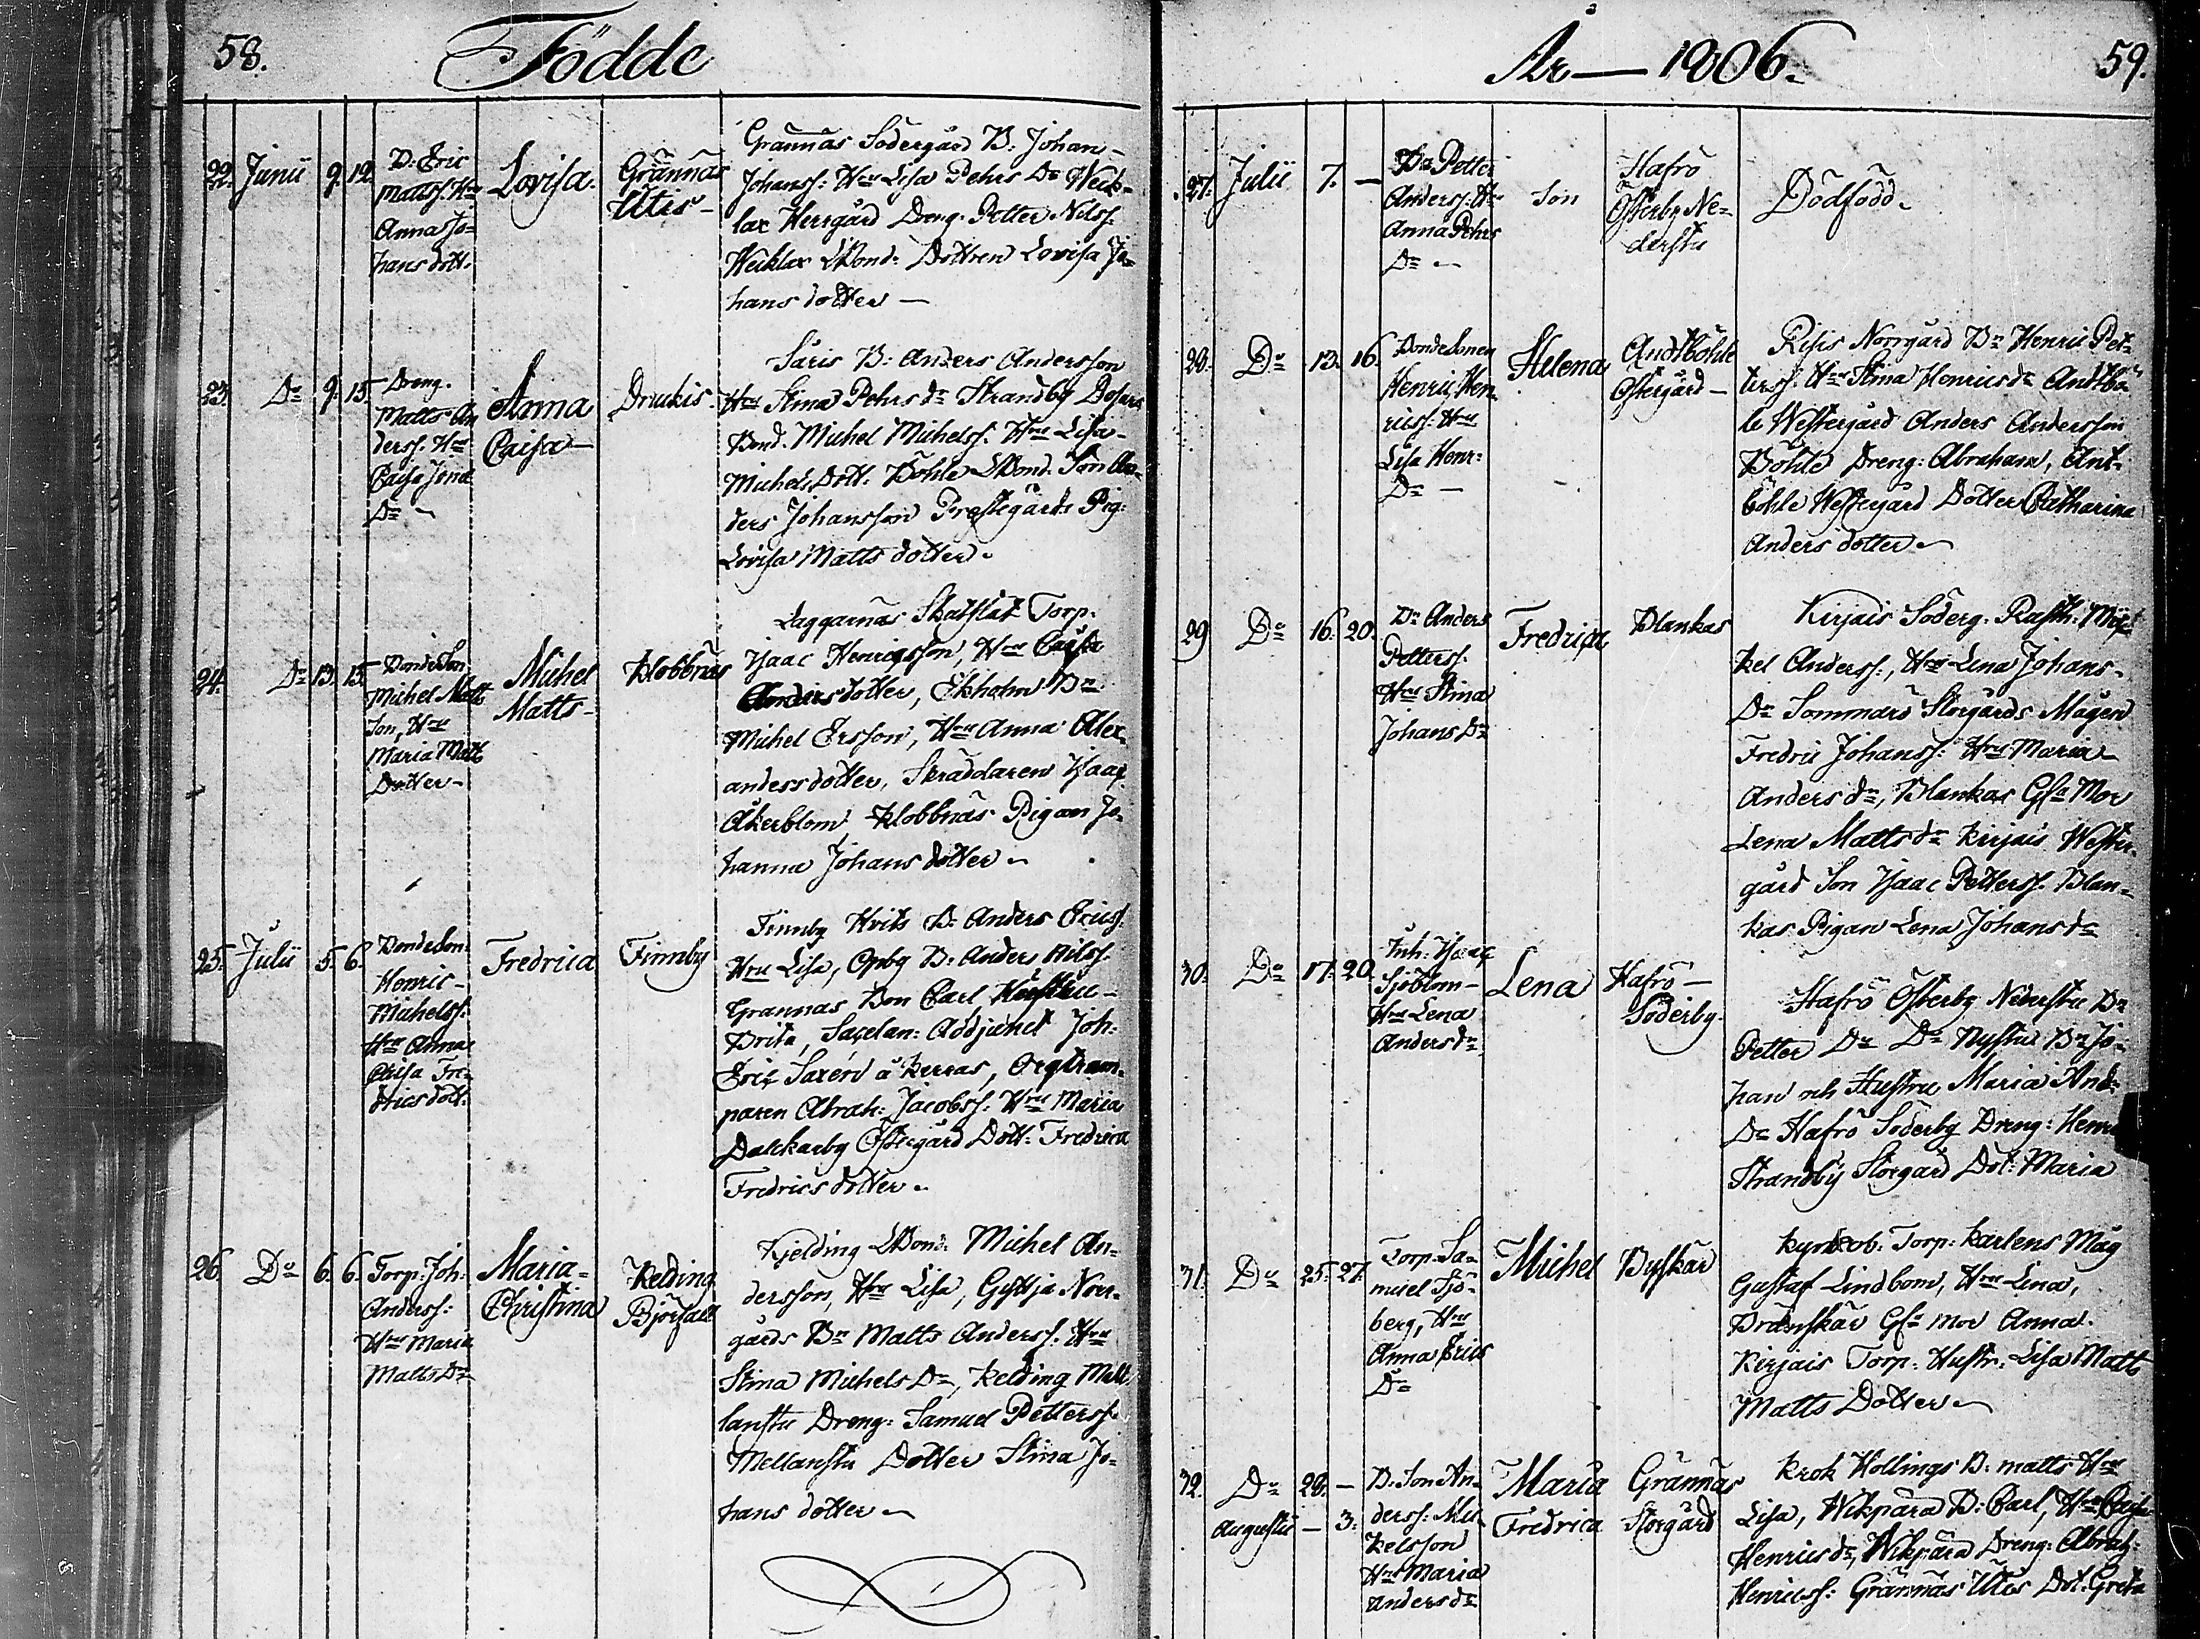 58.
Födde
22. Junii 9. 12.
D: Eric
Mattss. Hru
Anna Jo=
hans dott:
Lovisa.
Grännäs
Utis –
Grännäs Södergård B. Johan
Johanss: Hru Lisa Pehrs Dr Weck=
lax Herrgård Dreng. Petter Nilss:
Wecklax LBond: Dottren Lovisa Jo=
hans dotter –
23. Do 9. 15.
Dreng.
Matts An
derss. Hru
Caisa Jona
Dr –
Anna
Caisa –
Druckis.
Säris B: Anders Andersson
Hru Stina Pehrs dr Strandby
Bond. Michel Michelss. Hru Lisa
Michels Dott. Böhle LBond. Son An=
ders Johansson Prestegårds Pig:
Lovisa Matts dotter.
24. Do 13. 15.
Bondeson
Michel Matts
son, Hru
Maria Matts
Dotter –
Michel
Matts –
Klobbnäs
Laggarnäs Skatslåt Torp.
Isaac Henricsson, Hru Caisa
Anders dotter, Ekholm Bn
Michel Ersson, Hru Anna Alex
anders dotter, Skräddaren Isaac
Åkerblom, Klobbnäs Pigan Jo=
hanna Johans dotter –
25. Julii 5. 6.
Bondeson:
Henric –
Michelss.
Hru Anna
Caisa Fre=
drics dott.
Fredrica
Finnby
Finnby Hvits B: Anders Ericss.
Hru Lisa, Opby B: Anders Nilss.
Grannas Bon Carl Hustru –
Brita, Sacelan: Addjunct Joh:
Eric Saxén å Kerras, Orgtram=
paren Abrah: Jacobss: Hru Maria
Dalckarby Östergård Dott: Fredrica
Fredrics dotter.
26. Do 6. 6.
Torp: Joh:
Anderss:
Hru Maria
Matts Dr
Maria =
Christina
Kelding
Björsas
Kjelding LBond: Michel An=
dersson, Hru Lisa, Gyttja Norr=
gårds Bn Matts Anderss. Hru
Stina Michels Dr, Kelding Mel
lanstu Dreng: Samuel Petterss.
Mellanstu Dotter Stina Jo=
hans dotter –
År — 1806.
59.
27. Julii 7. –
Bn Petter
Anderss. Hru
Anna Pehrs
Dr –
Son
Hafrö
Österby Ne=
derstu
Dödfödd.
28. Do 13. 16.
Bondesonen
Henric Hen
ricss. Hru
Lisa Henr:
Dr –
Helena
Andtböhle
Östergård –
Risis Norrgård Bn Henric Pet=
terss: Hru Stina Henrics dr Andtbö
le Westergård Anders Andersson
Böhle Dreng: Abraham, Ant=
böhle Westergård Dotter Catharina
Anders dotter –
29. Do 16. 20.
Bn Anders
Petterss.
Hru Stina
Johans Dr
Fredrica
Blankas
Kirjais Söderg: Rusth: Mic
kel Anderss:, Hru Lena Johans
Dr Sommarö Storgårds Mågen
Fredric Johanss: Hru Maria
Anders dr, Blankas Gfa Mor
Lena Matts dr Kirjais Wester
gård Son Isaac Petterss. Blan=
kas Pigan Lena Johans dr
30. Do 17. 20.
Inh: Isaac
Sjöblom –
Hru Lena
Anders dr
Lena
Hafrö –
Söderby.
Hafrö Österby Nederstu Bn
Petter Dr Do Nystu Bn Jo=
han och Hustru Maria And:
Dr Hafrö Söderby Dreng: Henric
Strandby Storgård Dot: Maria
31. Do 25. 27.
Torp. Sa=
muel Sjö=
berg, Hru
Anna Erics
Dr
Michel
Byskär
Kyrkob. Torp: Karlens Måg
Gustaf Lindbom, Hru Lina,
Brännskär Gfa mor Anna.
Kirjais Torp: Hustr: Lisa Matts
Matts Dotter –
32. Do 28. –
Augustii – 3.
B. Son An=
derss: Mic
kelsson
Hru Maria
Anders dr
Maria
Fredrica
Grännäs
Storgård
Krok Hollings B: Matts Hru
Lisa, Wikpära B: Carl, Hru Caisa
Henrics dr, Wikpära Dreng: Abrah:
Henricss: Grännäs Utis Dot: Greta